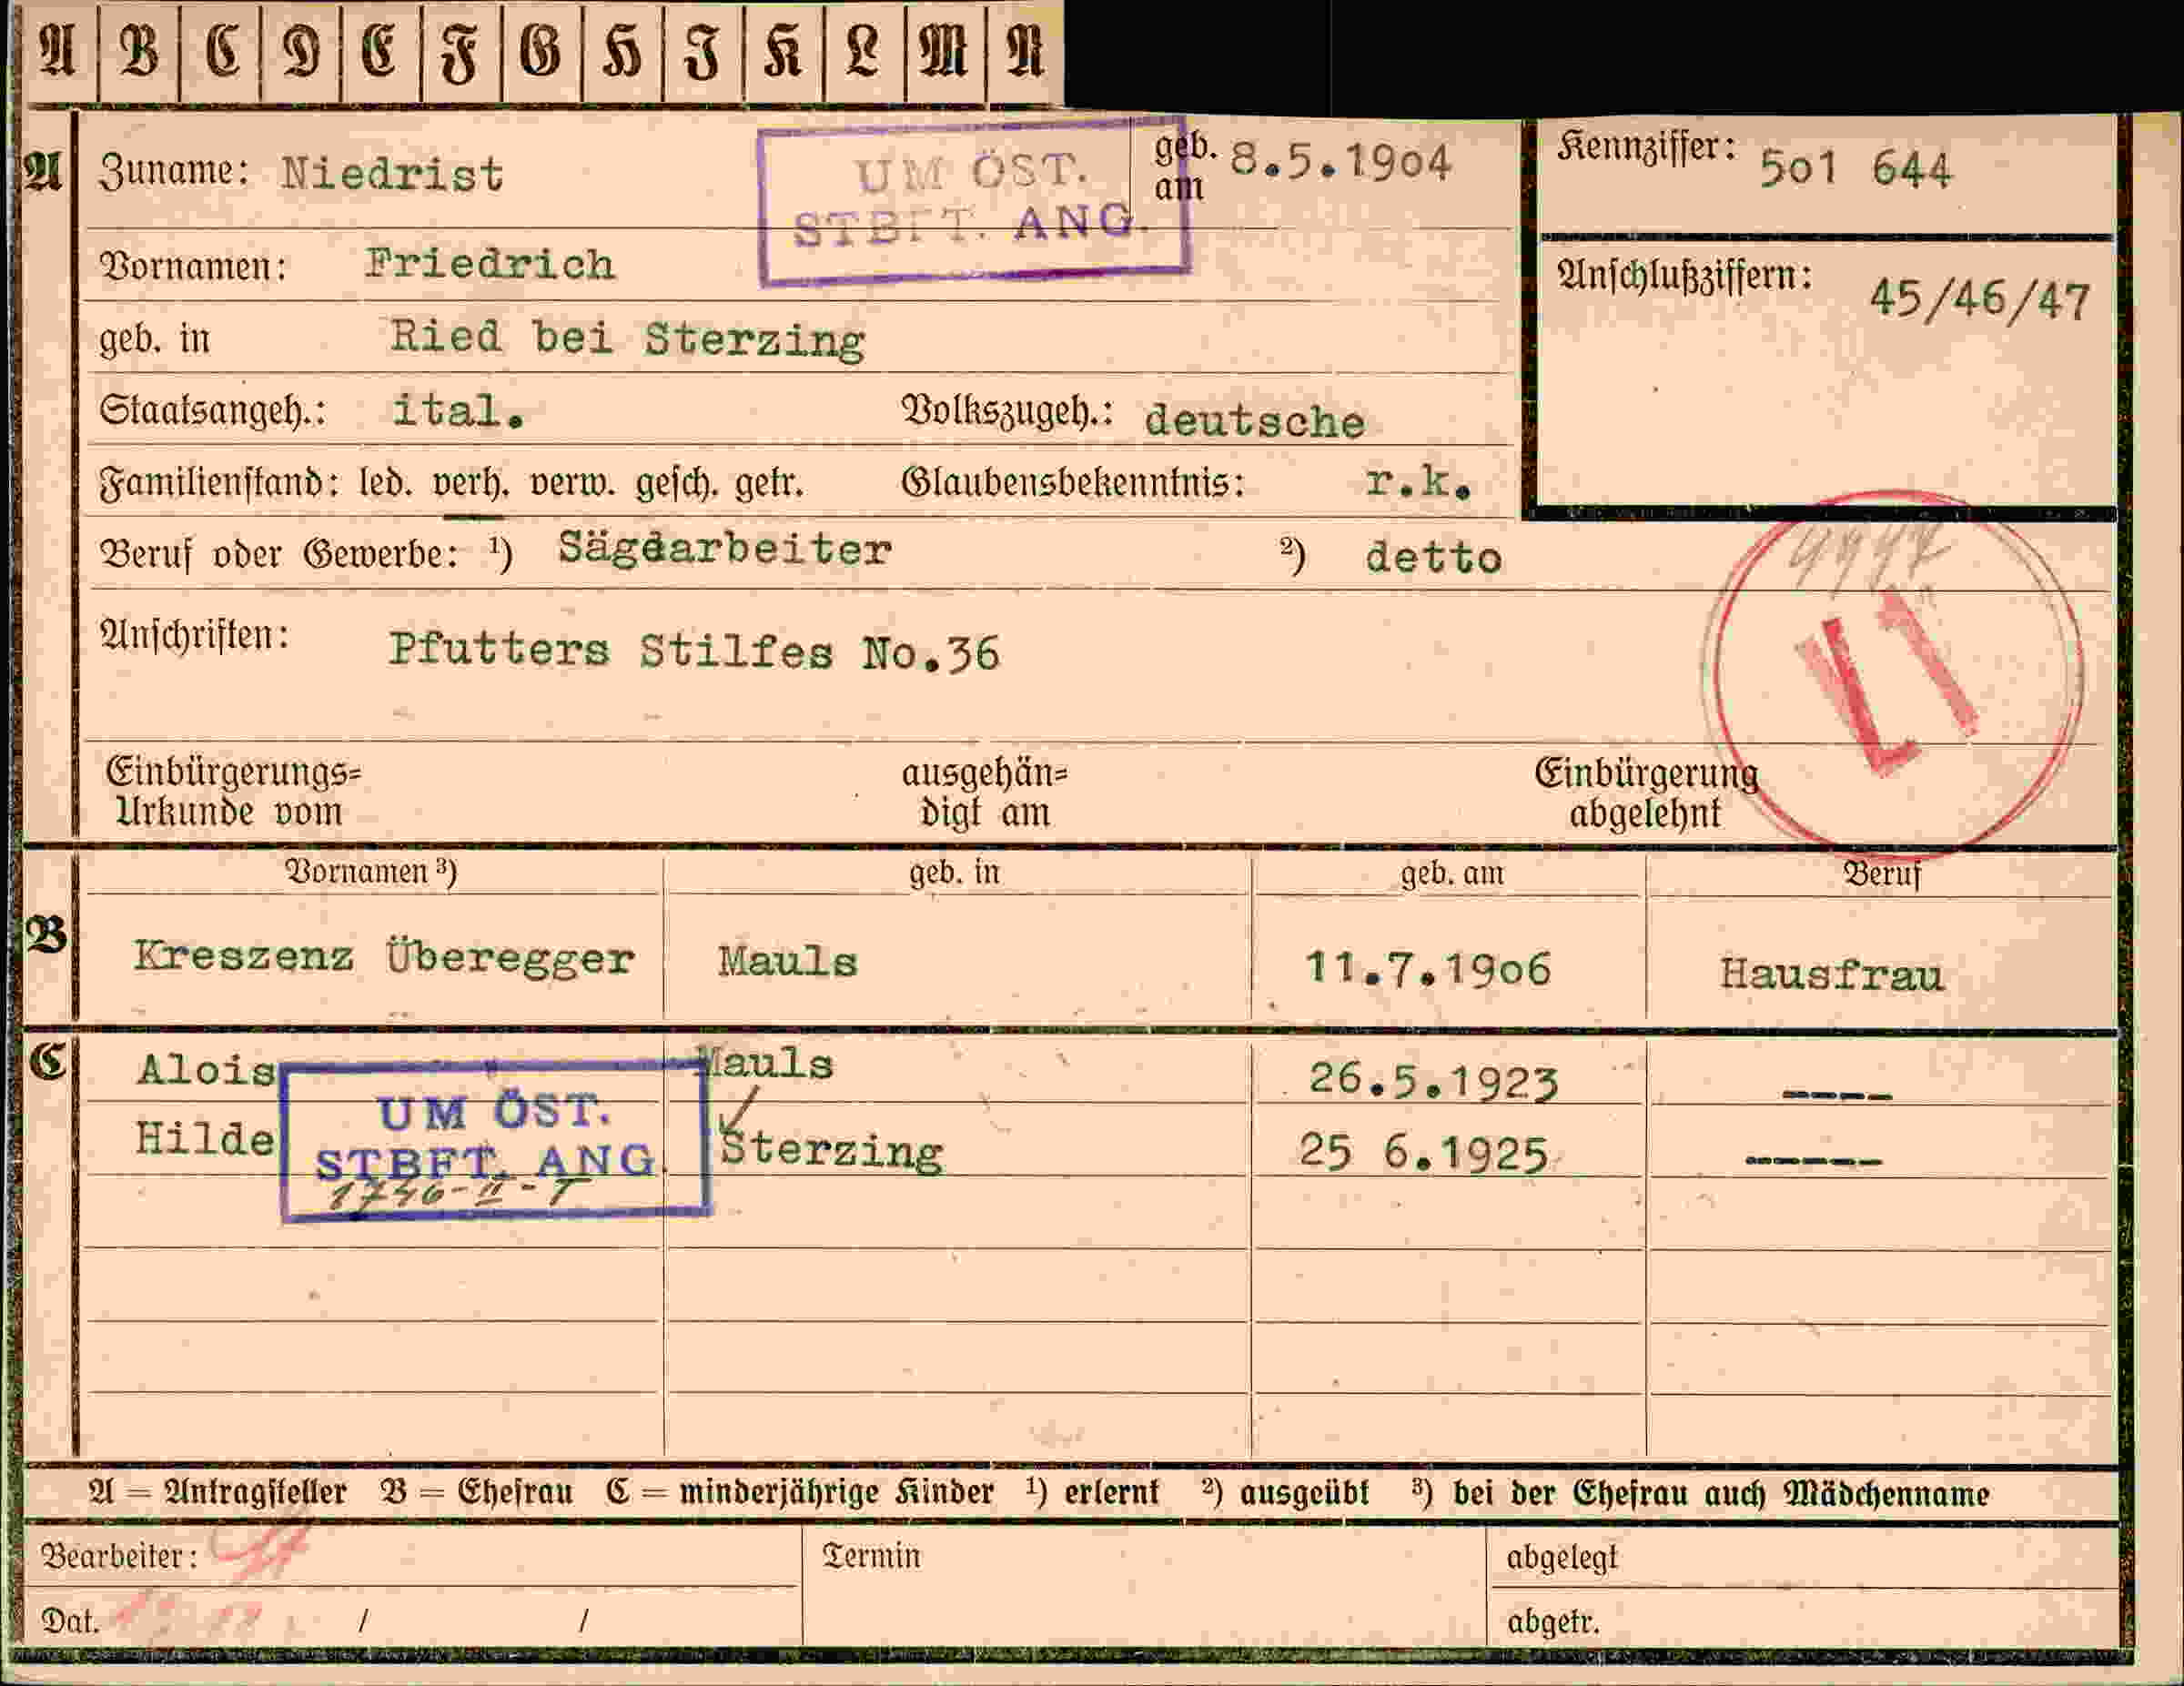 A B C D E F G H I K L M N
A Zuname: Niedrist geb. am 8.5.1904 Kennziffer: 501 644
UM ÖST.
STBFT. ANG.
Vornamen: Friedrich Anschlußziffern: 45/46/47
geb. in Ried bei Sterzing
Staatsangeh.: ital. Volkszugeh.: deutsche
Familienstand: led. verh. verw. gesch. getr. Glaubensbekenntnis: r.k.
Beruf oder Gewerbe: ¹) Sägearbeiter ²) detto
Anschriften: Pfutters Stilfes No.36
Einbürgerungs= ausgehän= Einbürgerung
Urkunde vom digt am abgelehnt
Vornamen ³) geb. in geb. am Beruf
B Kreszenz Überegger Mauls 11.7.1906 Hausfrau
C Alois Mauls 26.5.1923 ----
UM ÖST.
Hilde Sterzing 25 6.1925 -----
STBFT. ANG.
1746-II-T
A = Antragsteller B = Ehefrau C = minderjährige Kinder ¹) erlernt ²) ausgeübt ³) bei der Ehefrau auch Mädchenname
Bearbeiter: Termin abgelegt
Dat. / / abgetr.